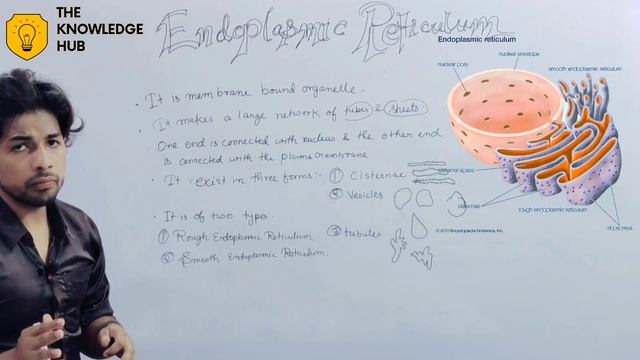 THE
KNOWLEDGE
HUB
Endoplasmic Reticulum
Endoplasmic reticulum
nuclear envelope
nuclear pore
smooth endoplasmic reticulum
cisternal space
cisternae
rough endoplasmic reticulum
ribosomes
Encyclopædia Britannica, Inc.
• It is membrane bound organelle.
• It makes a large network of tubes & sheets.
One end is connected with nucleus & the other end
is connected with the plasma membrane
• It exist in three forms:- ① Cisternae
② Vesicles
③ tubules
• It is of two types.
① Rough Endoplasmic Reticulum
② Smooth Endoplasmic Reticulum.